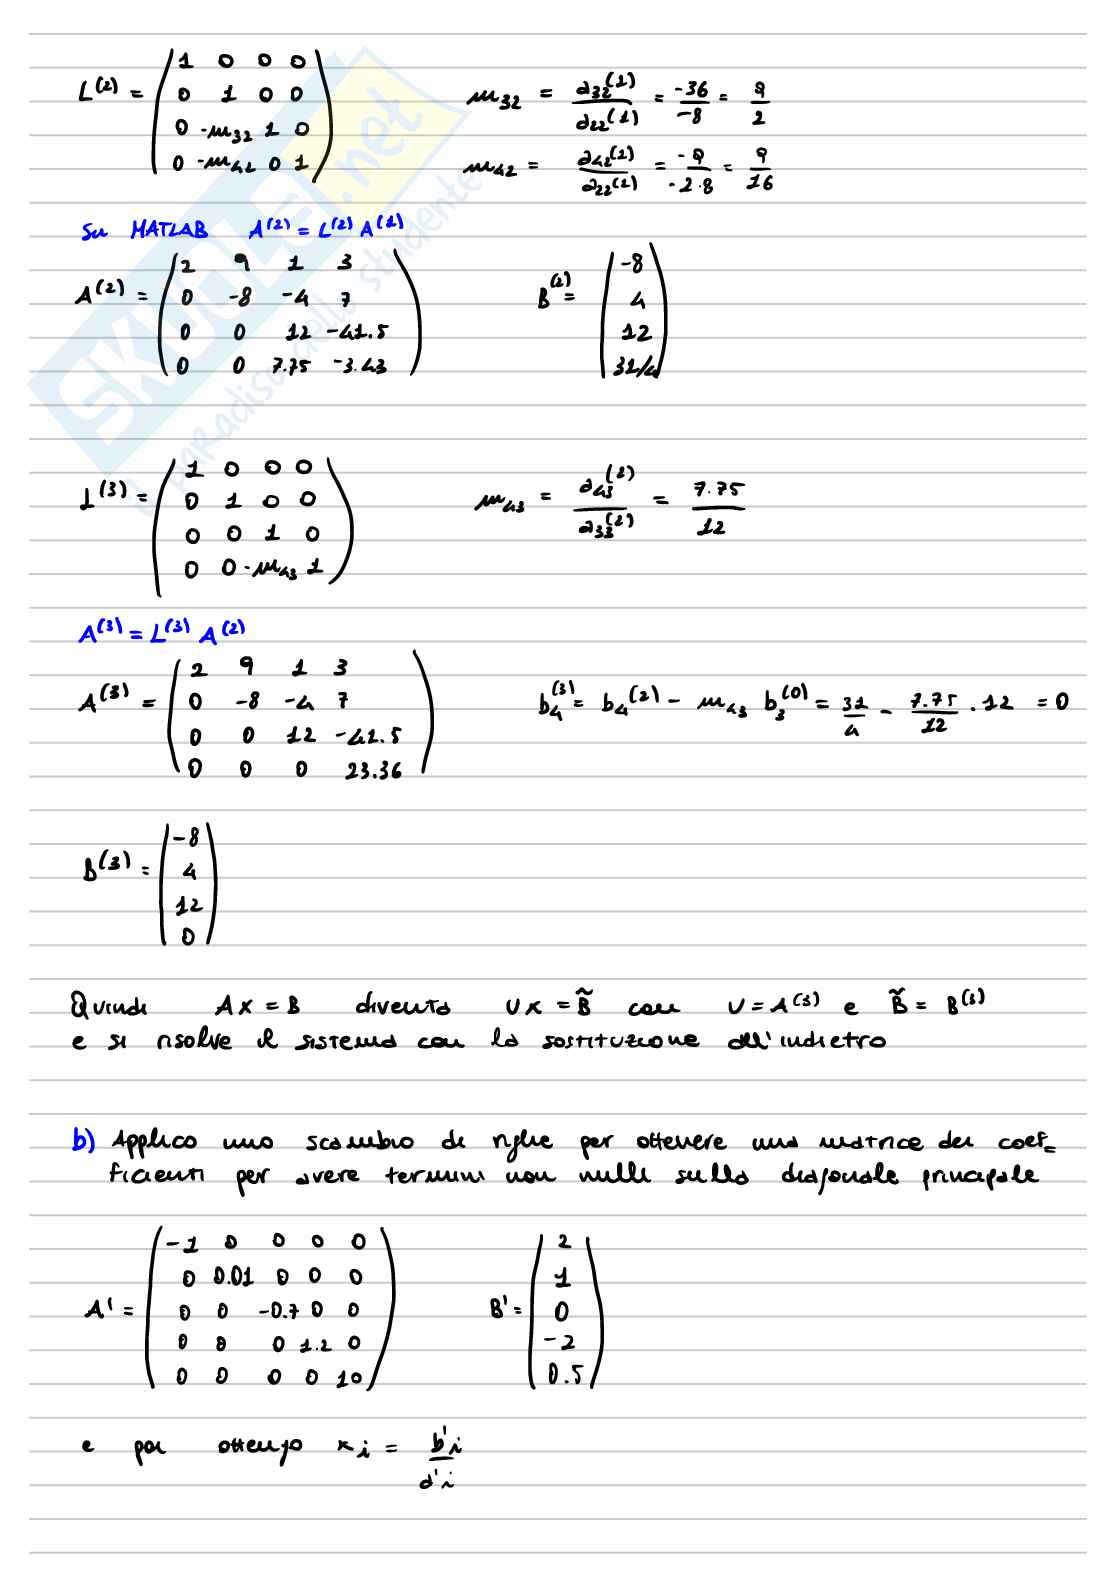 L^(2) = ( 1 0 0 0
0 1 0 0
0 -m32 1 0
0 -m42 0 1 )
m32 = a32^(1) / a22^(1) = -36 / -8 = 9 / 2
m42 = a42^(1) / a22^(1) = -9 / -2·8 = 9 / 16
Su MATLAB A^(2) = L^(2) A^(1)
A^(2) = ( 2 9 1 3
0 -8 -4 7
0 0 12 -41.5
0 0 7.75 -3.43 )
B^(2) = ( -8
4
12
31/4 )
L^(3) = ( 1 0 0 0
0 1 0 0
0 0 1 0
0 0 -m43 1 )
m43 = a43^(2) / a33^(2) = 7.75 / 12
A^(3) = L^(3) A^(2)
A^(3) = ( 2 9 1 3
0 -8 -4 7
0 0 12 -41.5
0 0 0 23.36 )
b4^(3) = b4^(2) - m43 b3^(0) = 31/4 - 7.75/12 · 12 = 0
B^(3) = ( -8
4
12
0 )
Quindi Ax = B diventa Ux = B̃ con U = A^(3) e B̃ = B^(3)
e si risolve il sistema con la sostituzione all'indietro
b) Applico uno scambio di righe per ottenere una matrice dei coef-
ficienti per avere termini non nulli sulla diagonale principale
A' = ( -1 0 0 0 0
0 0.01 0 0 0
0 0 -0.7 0 0
0 0 0 1.2 0
0 0 0 0 10 )
B' = ( 2
1
0
-2
0.5 )
e poi ottengo xi = b'i / d'i
SKUOLA.net
il paradiso dello studente